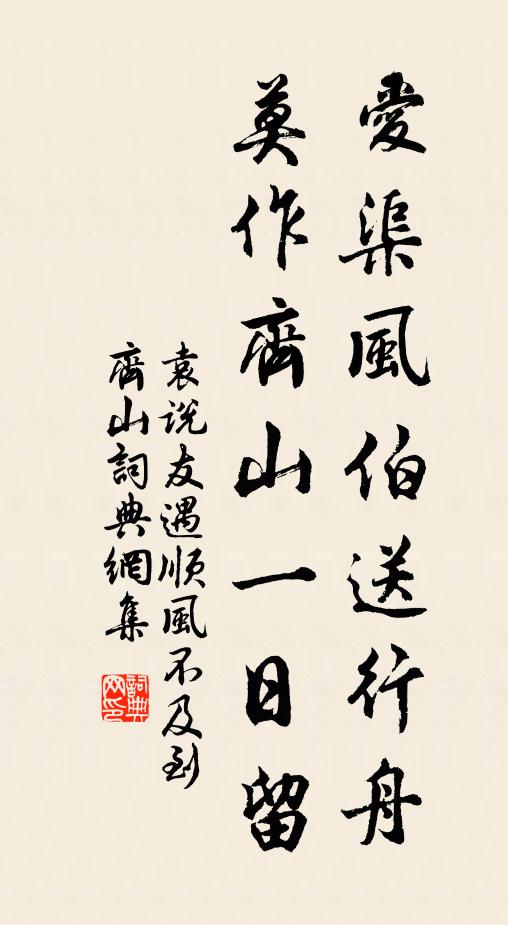 愛渠風伯送行舟
莫作齊山一日留
袁說友遇順風不及到
齊山詞典網集
詞典網印